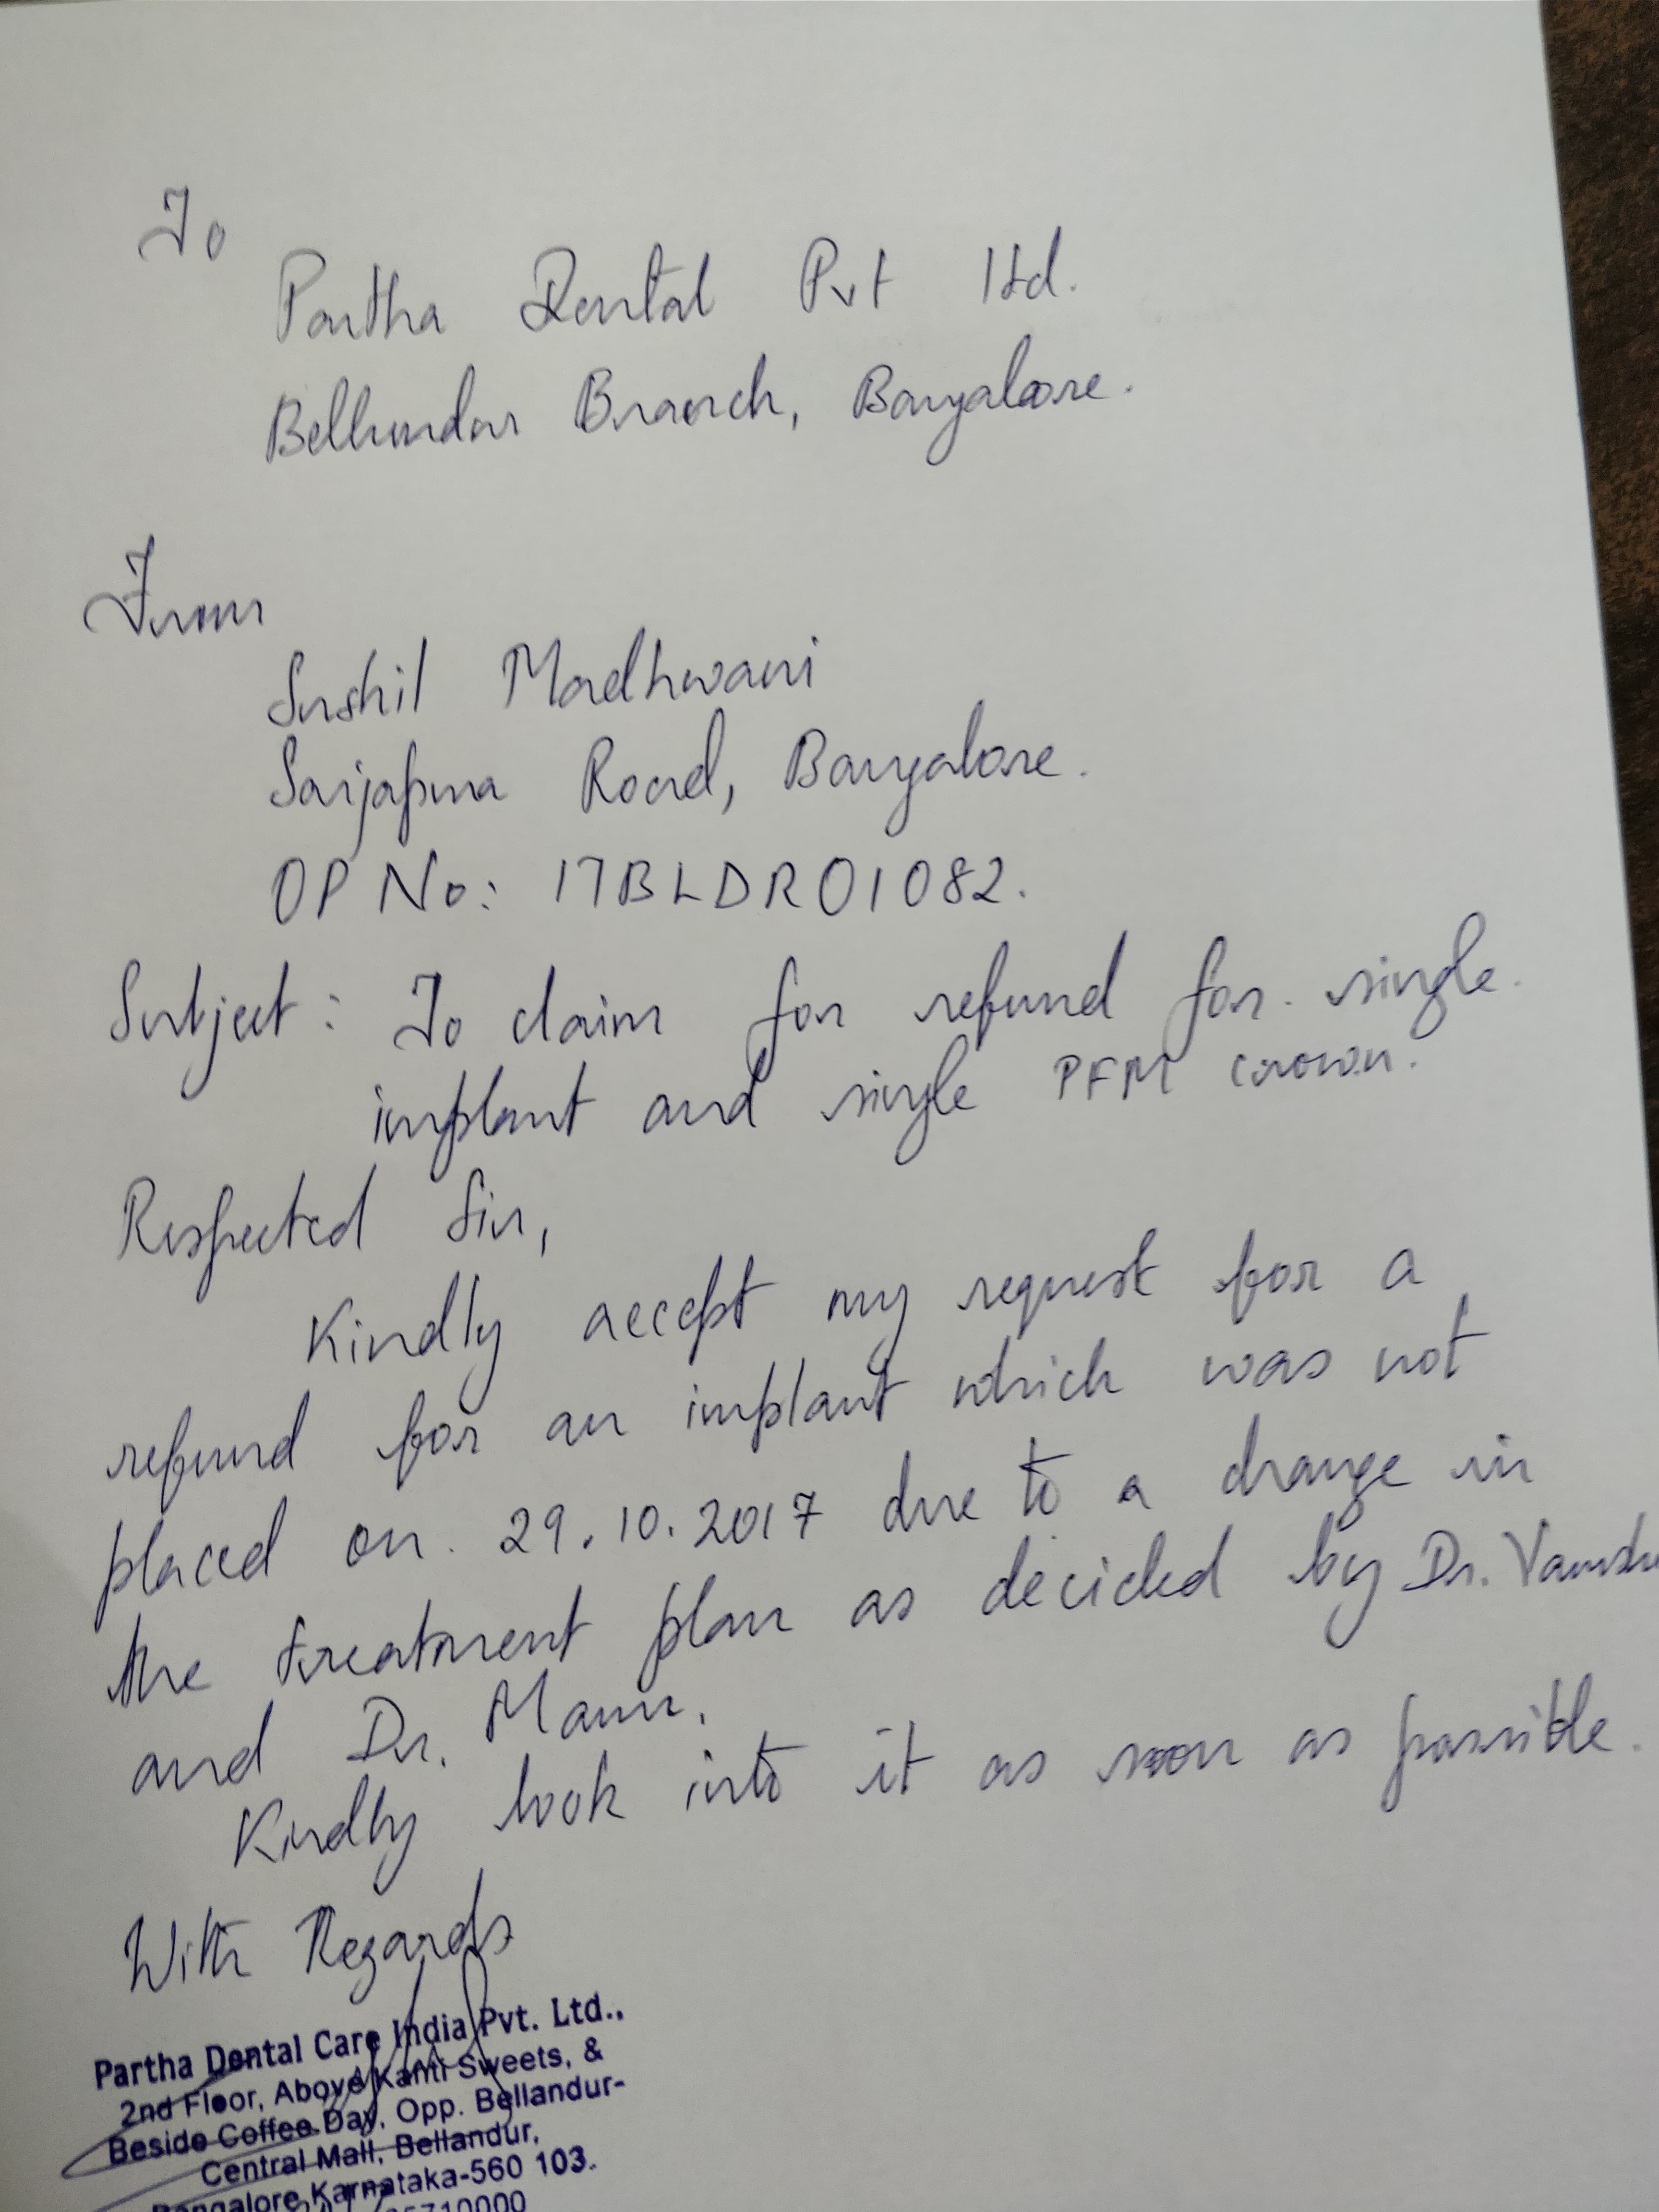 To
Partha Dental Pvt ltd.
Bellundur Branch, Bangalore.
From
Sushil Madhwani
Sarjapura Road, Bangalore.
OP No: 17BLDRO1082.
Subject: To claim for refund for single
implant and single PFM crown.
Respected Sir,
Kindly accept my request for a
refund for an implant which was not
placed on 29.10.2017 due to a change in
the treatment plan as decided by Dr.
and Dr. Manu.
Kindly look into it as soon as possible.
With Regards
Partha Dental Care India Pvt. Ltd.,
2nd Floor, Above Kanti Sweets, &
Beside Coffee Day, Opp. Bellandur-
Central Mall, Bellandur,
Bangalore Karnataka-560 103.